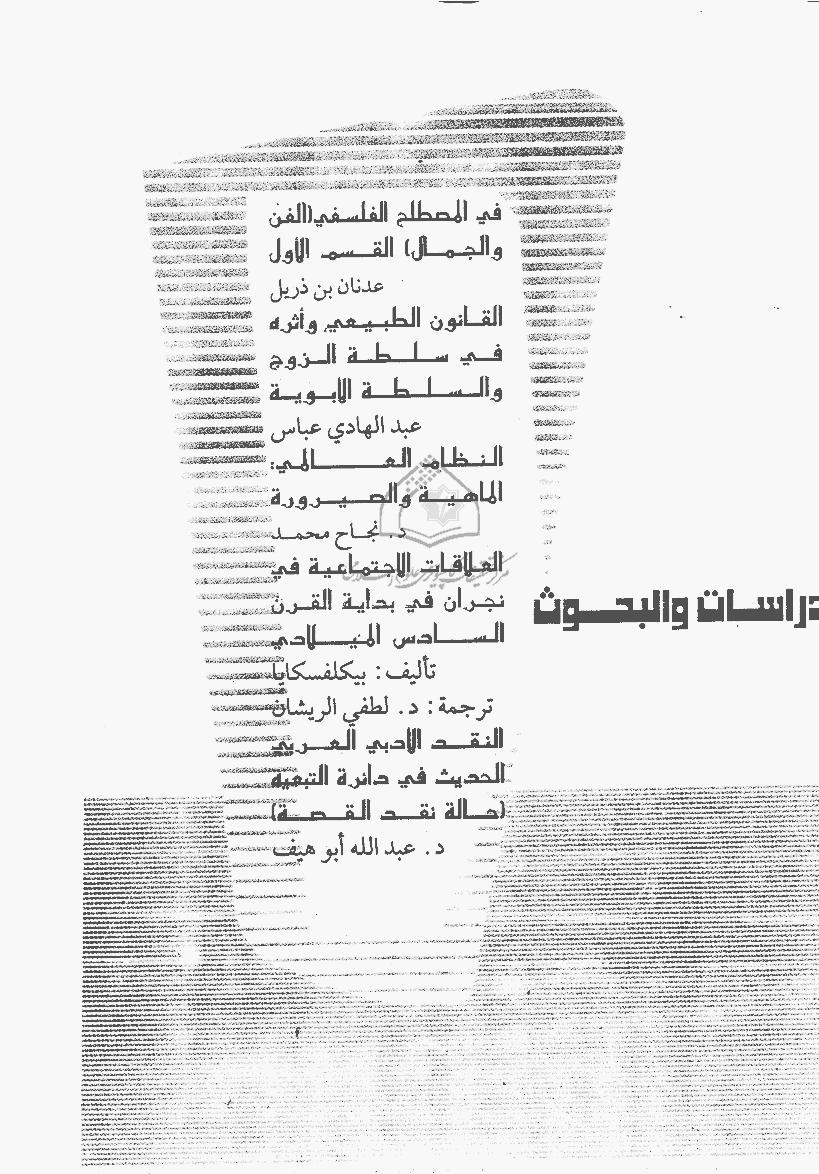 دراسات والبحوث
في المصطلح الفلسفي(الفن
والجمال) القسم الأول
عدنان بن ذريل
القانون الطبيعي وأثره
في سلطة الزوج
والسلطة الأبوية
عبد الهادي عباس
النظام العالمي:
الماهية والصيرورة
د. نجاح محمد
العلاقات الاجتماعية في
نجران في بداية القرن
السادس الميلادي
تأليف: بيكلفسكايا
ترجمة: د. لطفي الريشان
النقد الأدبي العربي
الحديث في دائرة التبعية
(حالة نقد القصة)
د. عبد الله أبو هيف